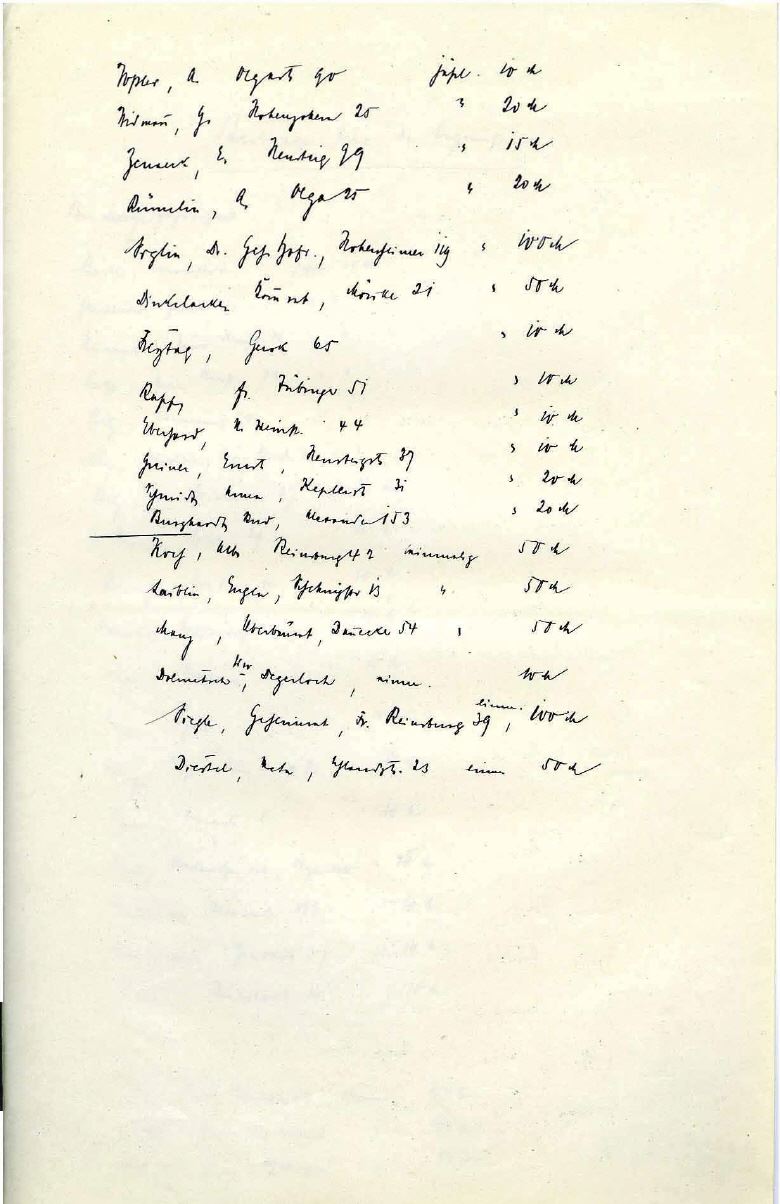 Topler, A. Olgastr 90 jährl. 10 M
Widman, G. Hohenzollern 25 " 20 M
Zenneck, E. Neusteig 99 " 15 M
Rümelin, A. Olga 25 " 20 M
Dr. Geh Hofr., Hohenheimer 119 " 100 M
Dinkelacker, Kommrt, Mörike 21 " 50 M
Freytag, Gerok 65 " 10 M
Rapp, fr. Tübinger 51 " 10 M
Eberhard, 44 " 10 M
Greiner, Ernst, 37 " 10 M
Schmidt Anna, Keplerst 31 " 20 M
Burghardt, Alexander 153 " 20 M
Koch, Alb. Reinsburg 42 einmalig 50 M
Laiblin, Eugen, 13 " 50 M
Oberbaurat, Dannecker 54 " 50 M
Dolmetsch Wwe, Degerloch, einm. 10 M
Siegle, Geheimrat, Fr. Reinsburg 39, einm. 100 M
Diestel, Meta, Uhlandstr. 23 einm 50 M